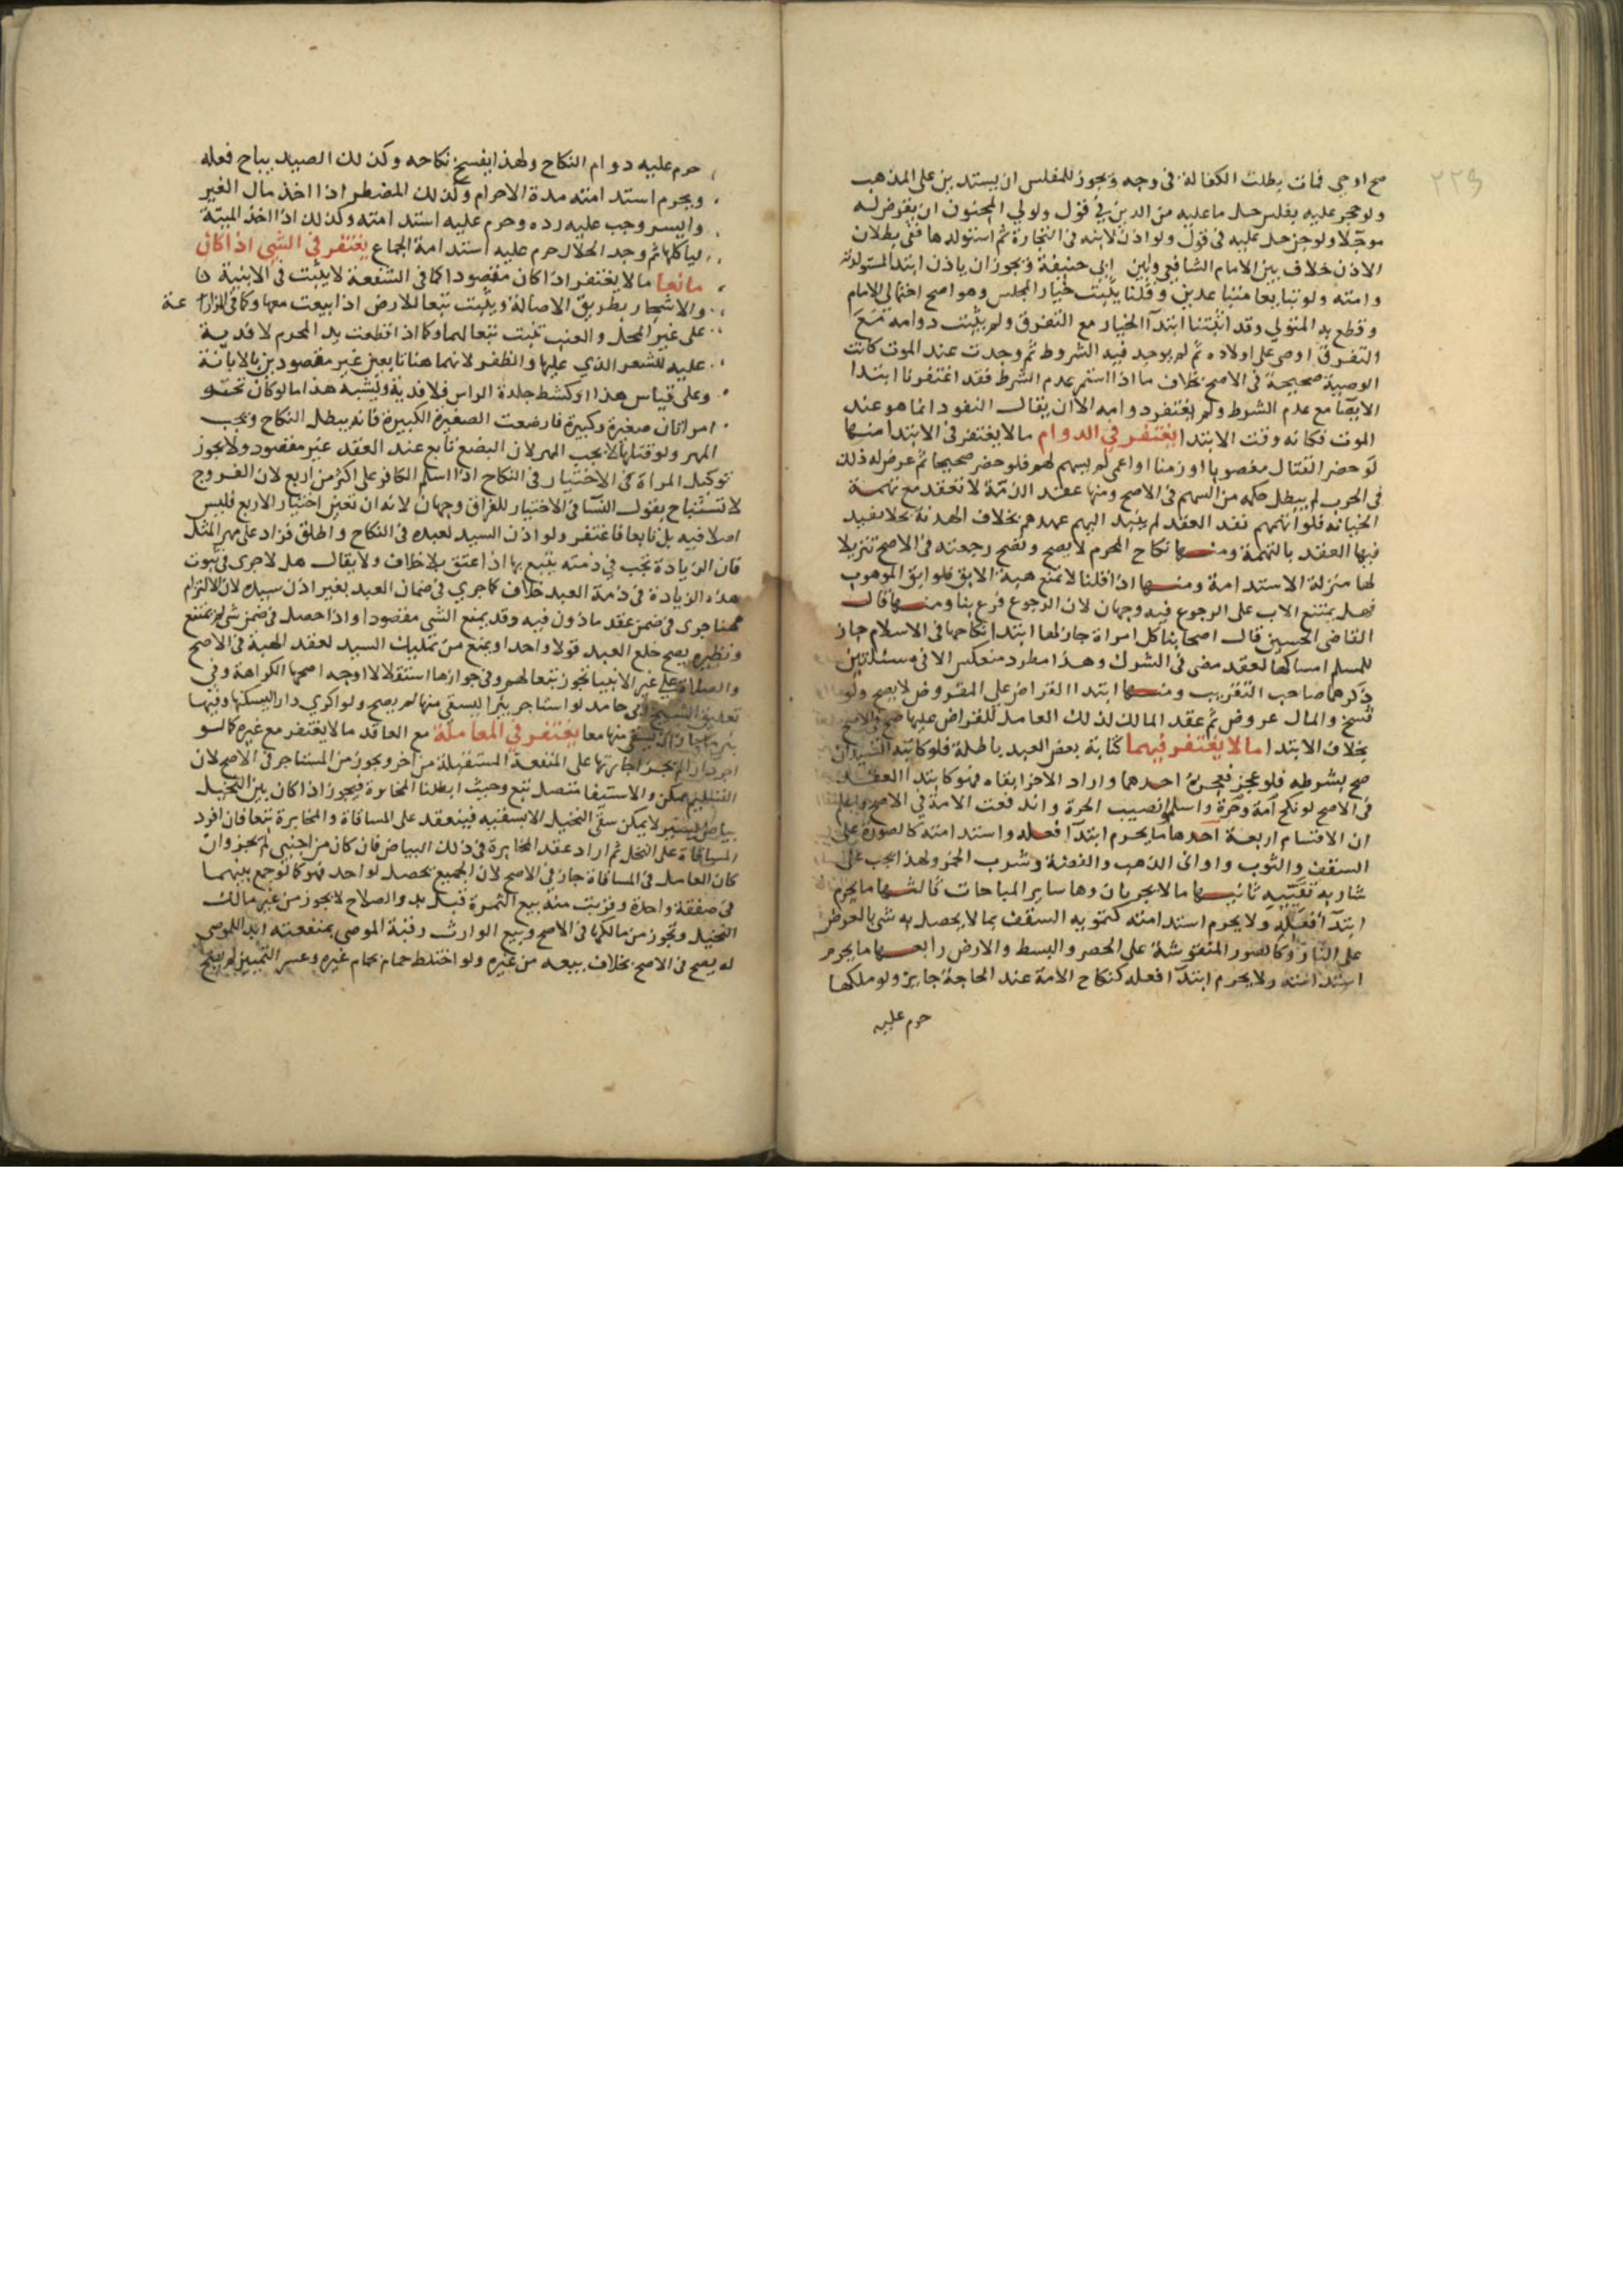 ٢٢٩
صح او حي فمات بطلت الكفالة في وجه ويجوز للمفلس ان يستدين على المذهب
ولو حجر عليه بفلس حل ما عليه من الدين في قول ولولي المجنون ان يقوض له
موجلا ولو جن حل عليه في قول ولو اذن لابنه في التجارة ثم استولدها ففي بطلان
الاذن خلاف بين الامام الشافعي وابي حنيفة ويجوز ان ياذن ابتدا لمستولدته
وامته ولو تبايعا متباعدين وقلنا يثبت خيار المجلس وهو اصح احتمالي الامام
وقطع به المتولي وقد اثبتنا ابتدآ الخيار مع التفرق ولم يثبت دوامه مع
التفرق اوصى على اولاده ثم لم يوجد فيه الشروط ثم وجدت عند الموت كانت
الوصية صحيحة في الاصح بخلاف ما اذا استمر عدم الشرط فقد اغتفرنا ابتدا
الايصا مع عدم الشروط ولم يغتفر دوامه الا ان يقال النفود انما هو عند
الموت فكانه وقت الابتدا يغتفر في الدوام ما لا يغتفر في الابتدا منها
لو حضر القتال مغصوبا او زمنا او اعمى لم يسهم لهم فلو حضر صحيحا ثم عرض له ذلك
في الحرب لم يبطل حكمه من السهم في الاصح ومنها عقد الذمة لا تعقد مع تهمة
الخيانه فلو اتهمهم نقد العقد لم ينبد اليهم عهدهم بخلاف الهدنة بخلا يفيد
فيها العقد بالتهمة ومنها نكاح المحرم لا يصح وتصح رجعته في الاصح تنزيلا
لها منزلة الاستدامة ومنها اذا قلنا لا تمنع هبة الابق فلو ابق الموهوب
فهل يمتنع الاب على الرجوع فيه وجهان لان الرجوع فرع بنا ومنها قال
القاضي الحسين قال اصحابنا كل امراة جاز لها ابتدا نكاحها في الاسلام جاز
للمسلم امساكها لعقد مضى في الشرك وهذا مطرد منعكس الا في مسئلتين
ذكرهما صاحب التقريب ومنها ابتدا القراض على المقروض لا يصح ولو
فسخ والمال عروض ثم عقد المالك لذلك العامل للقراض عليها صح
بخلاف الابتدا ما لا يغتفر فيهما كتابة بعض العبد باطلة فلو كاتبه السيدان
صح بشرطه فلو عجز فعجزه احدهما واراد الاخر ابقاه فهو كابتدا العقد
في الاصح لو نكح امة وحرة واسلموا نصيب الحرة واندفعت الامة في الاصح
ان الاقسام اربعة احدها ما يحرم ابتدآ فعله واستدامته كالصورة على
السقف والثوب واواني الذهب والفضة وشرب الخمر ولهذا يجب على
شاربه تقيئيه ثانيها ما لا يحرمان وها ساير المباحات ثالثها ما يحرم
ابتدآ فعله ولا يحرم استدامته كتمويه السقف بما لا يحصل به شي بالعرض
على النار وكالصور المنقوشة على الحصر والبسط والارض رابعها ما يحرم
استدامته ولا يحرم ابتدآ فعله كنكاح الامة عند الحاجة جايز ولو ملكها
حرم عليه
حرم عليه دوام النكاح ولهذا يفسخ نكاحه وكذلك الصيد يباح فعله
ويحرم استدامته مدة الاحرام وكذلك المضطر اذا اخذ مال الغير
وايسر وجب عليه رده وحرم عليه استدامته وكذلك اذا اخذ الميتة
لياكلها ثم وجد الحلال حرم عليه استدامة الجماع يغتفر في الشي اذا كان
مانعا ما لا يغتفر اذا كان مقصودا كما في الشفعة لا يثبت في الابنية
والاشجار بطريق الاصالة ويثبت تبعا للارض اذا بيعت معها وكما في المزارعة
على غير المحل والعنب تثبت تبعا لهما وكما اذا قطعت يد المحرم لا فدية
عليه للشعر الذي عليها والظفر لانهما هنا تابعين غير مقصودين بالابانة
وعلى قياس هذا او كشط جلدة الراس فلا فدية ويشبه هذا ما لو كان تحته
امراتان صغيرة وكبيرة فارضعت الصغيرة الكبيرة فانه يبطل النكاح ويجب
المهر ولو قتلها لا يجب المهر لان البضع تابع عند العقد غير مقصود ولا يجوز
توكيل المراة في الاختيار في النكاح اذا اسلم الكافر على اكثر من اربع لان الفروج
لا تستباح بقول النسآ في الاختيار للفراق وجهان لانه ان تعين اختيار الاربع فليس
اصلا فيه بل تابعا فاغتفر ولو اذن السيد لعبده في النكاح واطلق فزاد على مهر المثل
فان الزيادة تجب في ذمته يتبع بها اذا عتق بلا خلاف ولا يقال هل لا جرى في ثبوت
هذه الزيادة في ذمة العبد خلاف كما جري في ضمان العبد بغير اذن سيده لان الالتزام
ههنا جرى في ضمن عقد ماذون فيه وقد يمنع الشي مقصودا واذا حصل في ضمن شي لم يمتنع
ونظيره يصح خلع العبد قولا واحدا ويمنع من تمليك السيد لعقد الهبة في الاصح
والصلاة على غير الانبيا تجوز تبعا لهم وفي جوازها استقلالا اوجه اصحها الكراهة وفي
تعليق الشيخ ابي حامد لو استاجر بيرا ليستقي منها لم يصح ولو اكري دارا ليسكنها وفيها
بئر ماء جاز ان يستقي منها معا يغتفر في المعاملة مع العاقد ما لا يغتفر مع غيره كما لو
اجر دارا لم يجز اجارتها على المنفعة المستقبلة من اخر ويجوز من المستاجر في الاصح لان
ممكن والاستيفا متصل تبع وحيث ابطلنا المخابرة فيجوز اذا كان بين النخيل
بياض يسير لا يمكن سقي النخيل الا بسقيه فينعقد على المساقاة والمخابرة تبعا فان افرد
المساقاة على النخل ثم اراد عقد المخابرة في ذلك البياض فان كان من اجنبي لم يجز وان
كان العامل في المساقاة جاز في الاصح لان الجميع يحصل لواحد فهو كما لو جمع بينهما
في صفقة واحدة وقربت منه بيع الثمرة قبل بدو الصلاح لا يجوز من غير مالك
النخيل وتجوز من مالكها في الاصح وبيع الوارث رقبة الموصى بمنفعته ابدا للموصى
له يصح في الاصح بخلاف بيعه من غيره ولو اختلط حمام بحمام غيره وعسر التمييز لم يصح